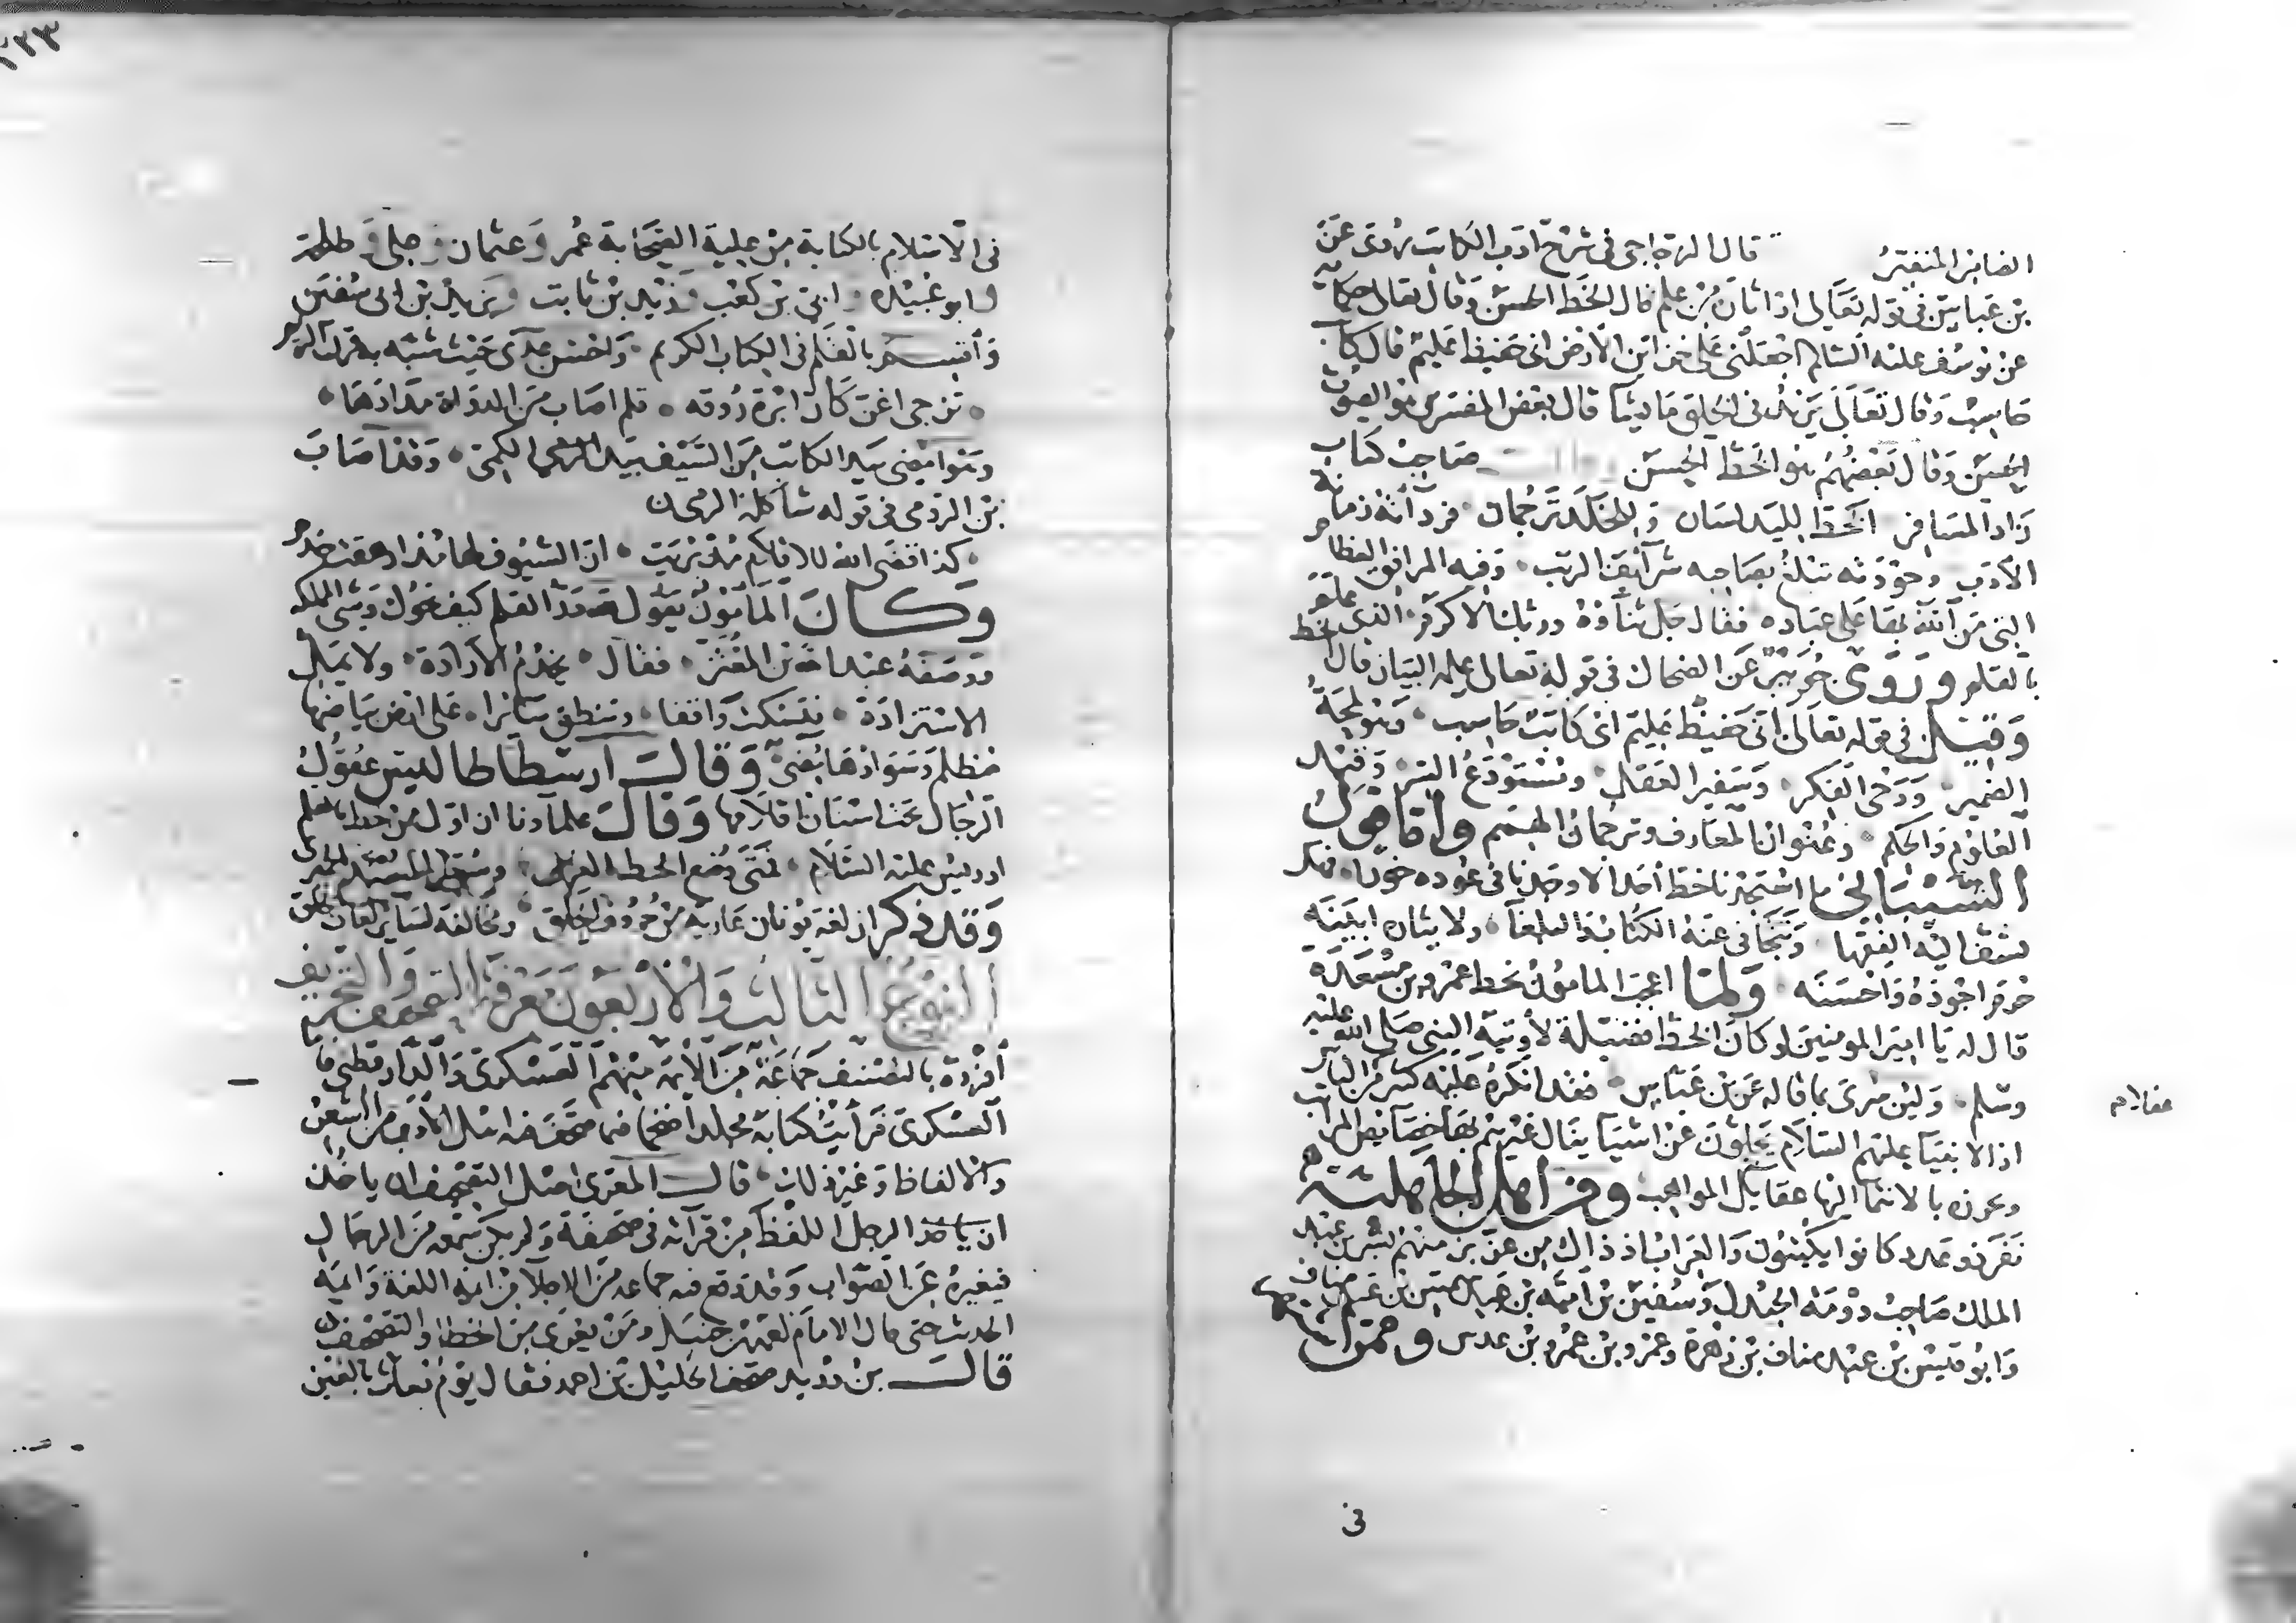 الصابر المفتقر قال الزجاجي في شرح ادب الكاتب روى عن
بن عباس في قوله تعالى او اثارة من علم قال الخط الحسن وقال تعالى حكاية
عن يوسف عليه السلام اجعلني على خزائن الارض اني حفيظ عليم قال كاتب
حاسب وقال تعالى يزيد في الخلق ما يشا قال بعض المفسرين هو الصوت
الحسن وقال بعضهم هو الخط الحسن صاحب كتاب
زاد المسافر الخط لليد لسان وللخلد ترجمان فرداته زمانة
الادب وجودته تبلغ بصاحبه شرائف الرتب وفيه المرافق العظام
التي من الله بها على عباده فقال جل ثناؤه وربك الاكرم الذي علم
بالقلم وروى جويبر عن الضحاك في قوله تعالى علمه البيان قال الخط
وقيل في قوله تعالى اني حفيظ عليم اي كاتب حاسب وهو لمحة
الضمير ووحي الفكر وسفير العقل ومستودع السر وقيد
العلوم والحكم وعنوان المعارف وترجمان الهمم واما قول
الشيباني ما استجدنا خط احد الا وجدنا في عوده خورا فهل
يسف اليه الفقها ويتجافى عنه الكتاب والبلغا ولا يثاره ابينه
حرم اجوده واحسنه ولما اعجب المامون بخط عمرو بن مسعدة
قال له يا امير المومنين لو كان الخط فضيلة لاوتيه النبي صلى الله عليه
وسلم ولئن سرى بما قاله عن بن عباس فقد انكره عليه كثير من الناس
اذ الانبيا عليهم السلام يجلون عن اشيا ينال غيرهم بها خصايص المراتب
ويحرزه بالانتما اليها عقايل المواهب ومن اهل الجاهلية
نفر ذو عدد كانوا يكتبون والعرب اذ ذاك من عز بز منهم بشر بن عبد
الملك صاحب دومة الجندل وسفين بن امية بن عبد شمس بن عبد مناف
وابو قيس بن عبد مناف بن زهرة وعمرو بن عمرو بن عدس وممن اشتهر
في
في الاسلام بالكتابة من علية الصحابة عمر وعثمان وعلي وطلحة
وابو عبيدة وابي بن كعب وزيد بن ثابت ويزيد بن ابي سفين
واقسم بالقلم في الكتاب الكريم واحسن عدي حيث شبه به قرن الريم
تزجي اغن كان ابرة روقه قلم اصاب من الدواة مدادها
وهو امضى بيد الكاتب من السيف بيد الكمي وقد اصاب
بن الرومي في قوله شاكلة الرمي
كذا قضى الله للاقلام مذ بريت ان السيوف لها مذ ارهفت خدم
وكان المامون يقول لله در القلم كيف يحوك وشي المملكة
ووصفه عبد الله بن المعتز فقال يخدم الارادة ولا يمل
الاستزادة فيسكت واقفا وينطق سائرا على ارض بياضها
مظلم وسوادها مضي وقال ارسطاطاليس عقول
الرجال تحت اسنان اقلامها وقال علماونا ان اول من خط بالقلم
ادريس عليه السلام فمتى وضع الخط العربي
وقد ذكر ان لغة يونان عارية من حروف الحلق ومخالفة لسائر لغات الخلق
النوع الثالث والاربعون معرفة التصحيف والتحريف
افرده بالتصنيف جماعة من الائمة منهم العسكري والدارقطني فاما
العسكري فرأيت كتابه مجلدا ضخما فيما صحف فيه اهل الادب من الشعر
والالفاظ وغير ذلك قال المعري اصل التصحيف ان ياخذ
ان ياخذ الرجل اللفظ من قرآنه في صحيفة ولم يكن سمعه من الرجال
فيغيره عن الصواب وقد وقع فيه جماعه من الاجلا من ايمه اللغة وايمة
الحديث حتى قال الامام احمد بن حنبل ومن يعرى من الخطا والتصحيف
قال بن دريد صحف الخليل بن احمد فقال يوم بغاث بالغين